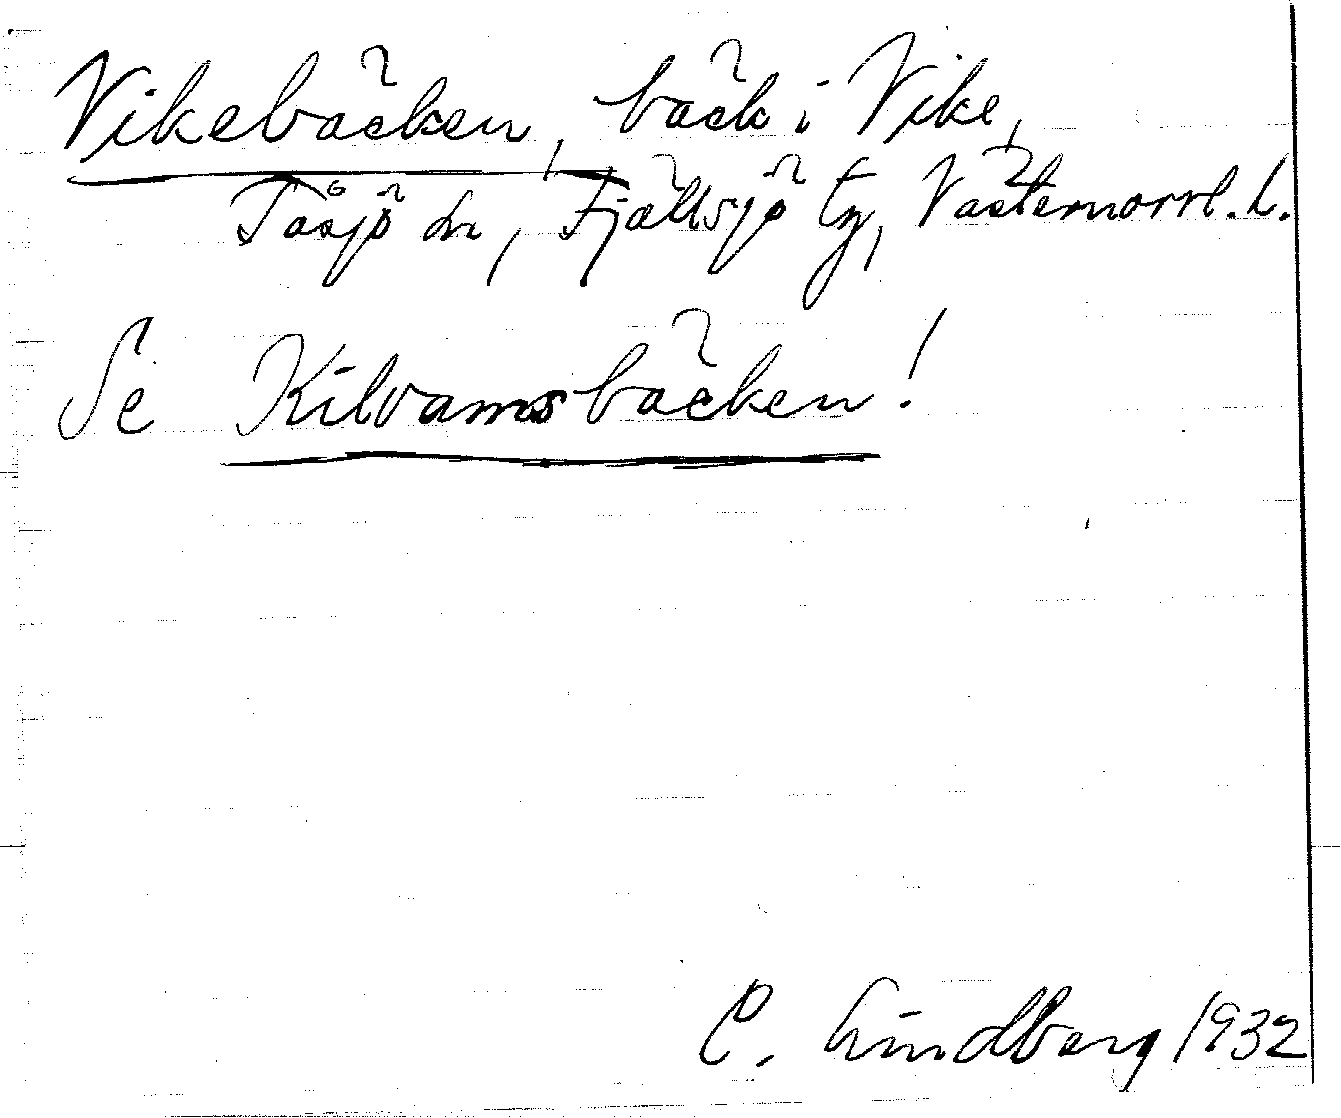 Vikebäcken, bäck i Vike,
Tåsjö sn, Fjällsjö tg, Västernorrl. L.
Se Kilvamsbäcken!
C. Lindberg 1932